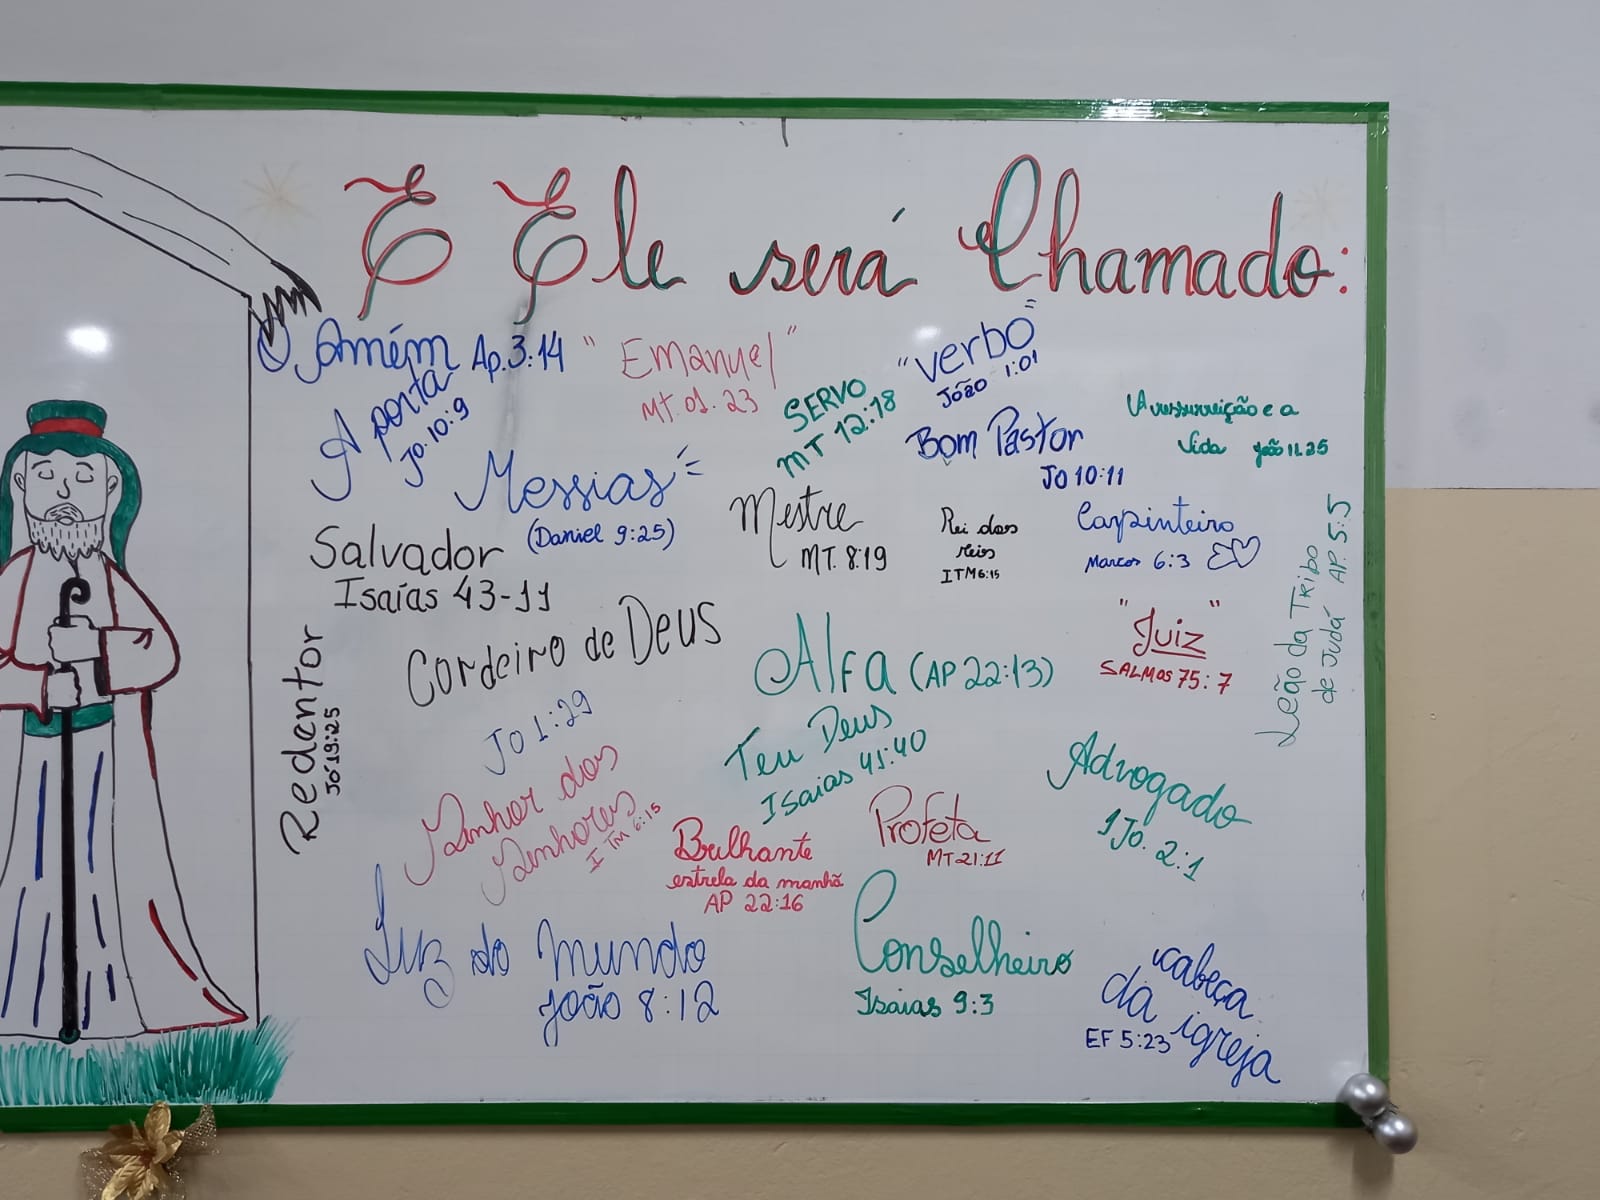 E Ele será Chamado:
O Amém Ap. 3:14
"Emanuel"
Mt. 01. 23
"Verbo"
João 1:01
SERVO
MT 12:18
A porta
Jo. 10:9
Messias
(Daniel 9:25)
Bom Pastor
Jo 10:11
A ressurreição e a
Vida João 11.25
Salvador
Isaías 43-11
Mestre
MT. 8:19
Rei dos
reis
I TM 6:15
Carpinteiro
Marcos 6:3
Leão da Tribo
de Judá AP. 5:5
Redentor
Jó 19:25
Cordeiro de Deus
Jo 1:29
Alfa (AP 22:13)
"Juiz"
SALMOS 75:7
Teu Deus
Isaías 41:40
Advogado
1 Jo. 2:1
Senhor dos
Senhores
I TM 6:15
Brilhante
estrela da manhã
AP 22:16
Profeta
MT 21:11
Luz do Mundo
João 8:12
Conselheiro
Isaías 9:3
Cabeça
da igreja
EF 5:23